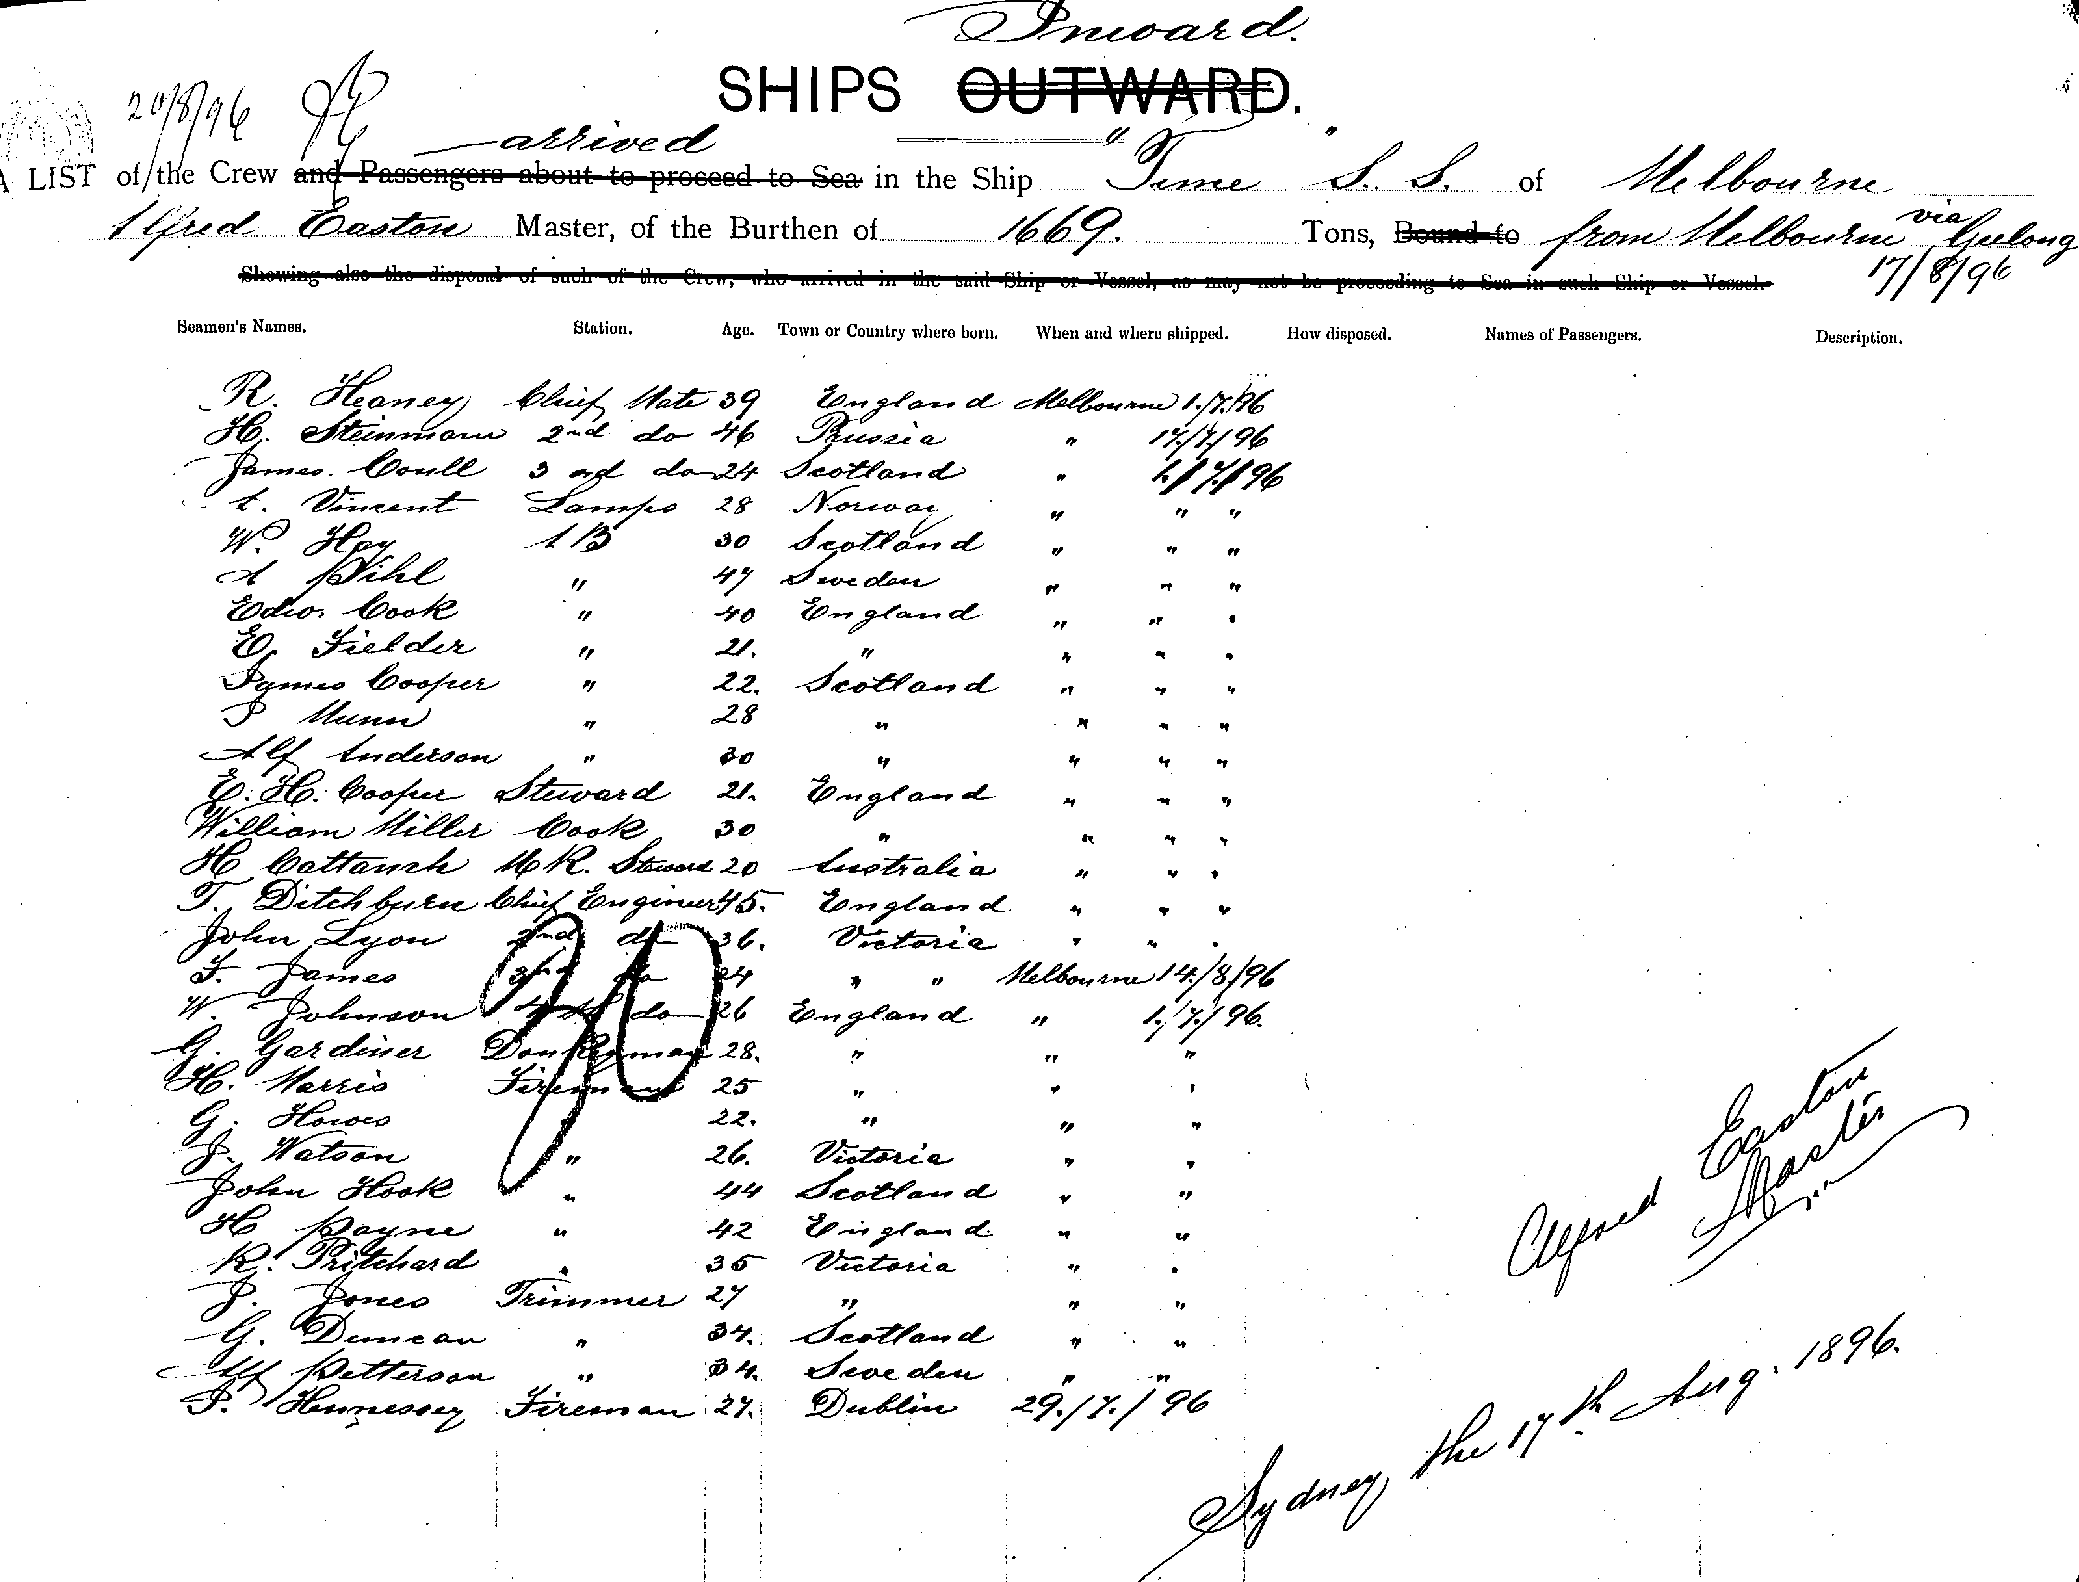 Inward.
SHIPS OUTWARD.
20/8/96
arrived
A LIST of the Crew and Passengers about to proceed to Sea in the Ship "Time" S. S. of Melbourne
Alfred Easton Master, of the Burthen of 1669. Tons, Bound to from Melbourne via Geelong
17/8/96
Showing also the disposal of such of the Crew, who arrived in the said Ship or Vessel, as may not be proceeding to Sea in such Ship or Vessel.
Seamen's Names. Station. Age. Town or Country where born. When and where shipped. How disposed. Names of Passengers. Description.
R. Heaney Chief Mate 39 England Melbourne 1./7./96
H. Steinmann 2nd do 46 Russia " 17./7/96
James Coull 3rd do 24 Scotland " 1./7./96
A. Vincent Lamps 28 Norway " " "
W. Hay AB 30 Scotland " " "
A Pihl " 47 Sweden " " "
Edw. Cook " 40 England " " "
E. Fielder " 21. " " " "
James Cooper " 22. Scotland " " "
P Munn " 28 " " " "
Alf Anderson " 30 " " " "
E. H. Cooper Steward 21. England " " "
William Miller Cook 30 " " " "
H Cattanch M R. Steward 20 Australia " " "
T. Ditchburn Chief Engineer 45. England " " "
John Lyon 2nd do 36. Victoria " " "
F. James 3rd do 24 " " Melbourne 14./8/96
W. Johnson 4th do 26 England " 1./7./96.
G. Gardiner Donkeyman 28. " " "
H. Harris Fireman 25 " " "
G. Howes 22. " " "
J. Watson " 26. Victoria " "
John Hook " 44 Scotland " "
H Payne " 42 England " "
R. Pritchard " 35 Victoria " "
J. Jones Trimmer 27 " " "
G. Duncan " 34. Scotland " "
Alf Petterson " 34. Sweden " "
P. Hennessey Fireman 27. Dublin 29./7./96
Alfred Easton
Master
Sydney, the 17th Aug. 1896.